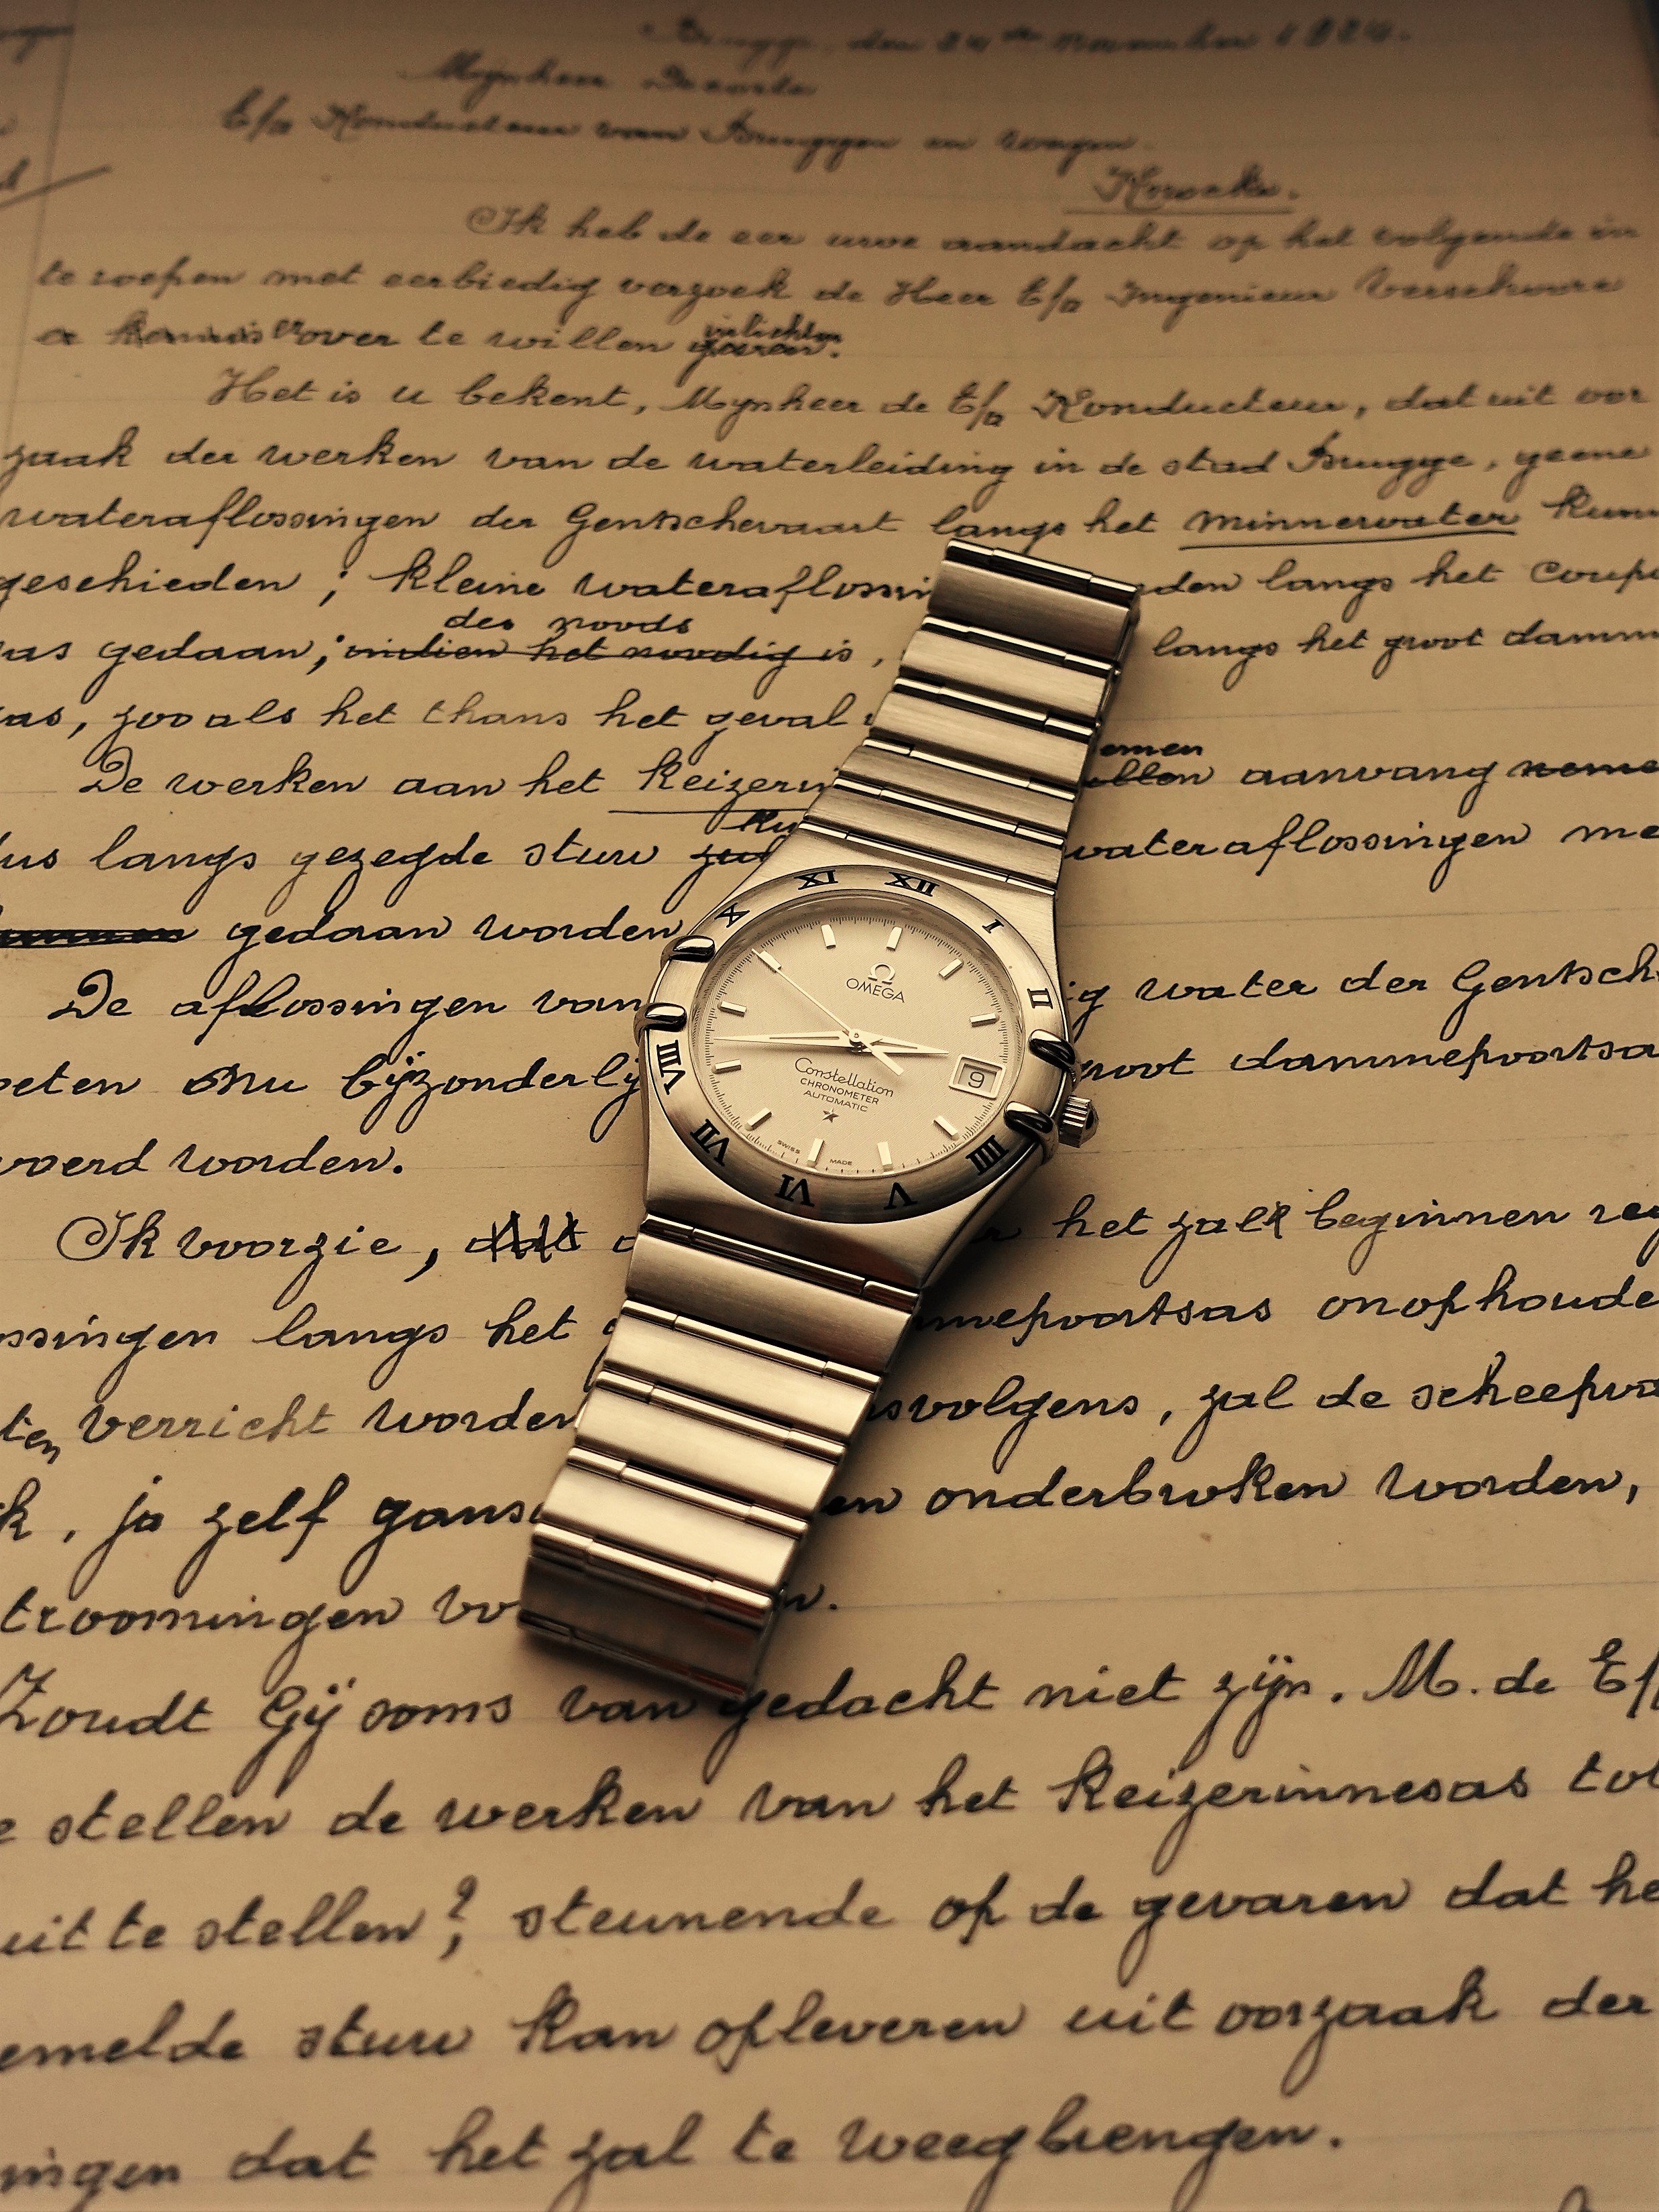 Brugge, den 24ⁿ November 1924.
Mynheer
E/a Konducteur van Bruggen en wegen
Ik heb de eer uwe aandacht op het volgende in
te roepen met eerbiedig verzoek de Heer E/a Ingenieur Verschoore
over te willen inlichten
Het is u bekent, Mynheer de E/a Konducteur, dat uit oor
zaak der werken van de waterleiding in de stad Brugge, geene
wateraflossingen der Gentschevaart langs het minnewater kunn
geschieden ; kleine wateraflossin den langs het Coupu
des noods
as gedaan, indien het noodig is, langs het groot damm
as, zooals het thans het geval
emen
De werken aan het Keizerin ollen aanvang neme
dus langs gezegde stuw wateraflossingen me
gedaan worden
De aflossingen van ig water der Gentsch
oeten nu bijzonderlij root dammepoortsa
voerd worden.
Ik voorzie, dat het zal beginnen reg
ossingen langs het mepoortsas onophoude
ten verricht worden svolgens, zal de scheepva
k, ja zelf gans en onderbroken worden,
troomingen vo n.
Zoudt Gij soms van gedacht niet zijn. M. de E/
e stellen de werken van het Keizerinnesas tot
uit te stellen? steunende op de gevaren dat he
emelde stuw kan opleveren uit oorzaak der
ningen dat het zal te weegbrengen.
XII
I
II
IIII
V
VI
VII
VIII
X
XI
Ω
OMEGA
Constellation
CHRONOMETER
AUTOMATIC
9
SWISS MADE